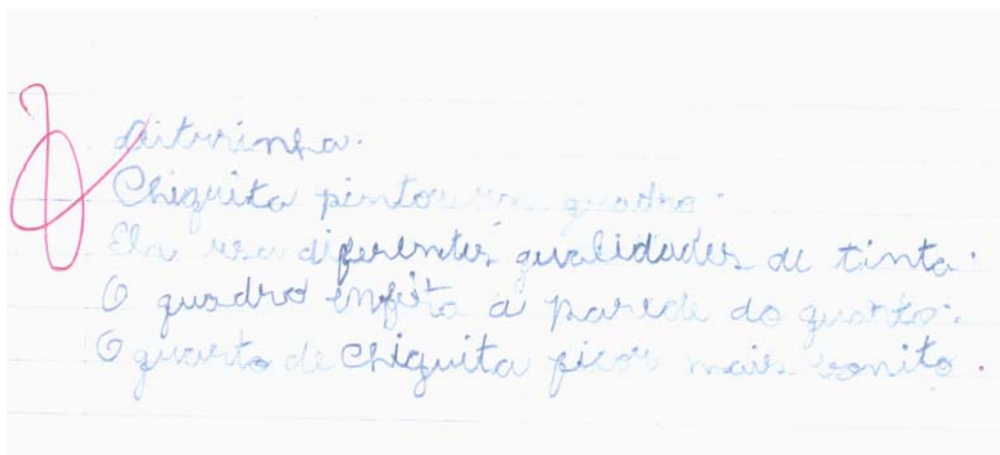 Leiturinha.
Chiquita pintou um quadro.
Ela usa diferentes qualidades de tinta.
O quadro enfeita a parede do quarto.
O quarto de Chiquita ficou mais bonito.